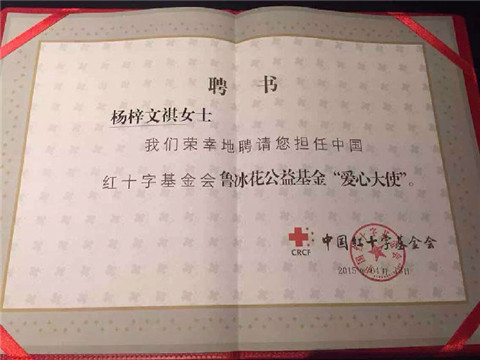 聘书
杨梓文祺女士
我们荣幸地聘请您担任中国
红十字基金会鲁冰花公益基金“爱心大使”。
CRCF
中国红十字基金会